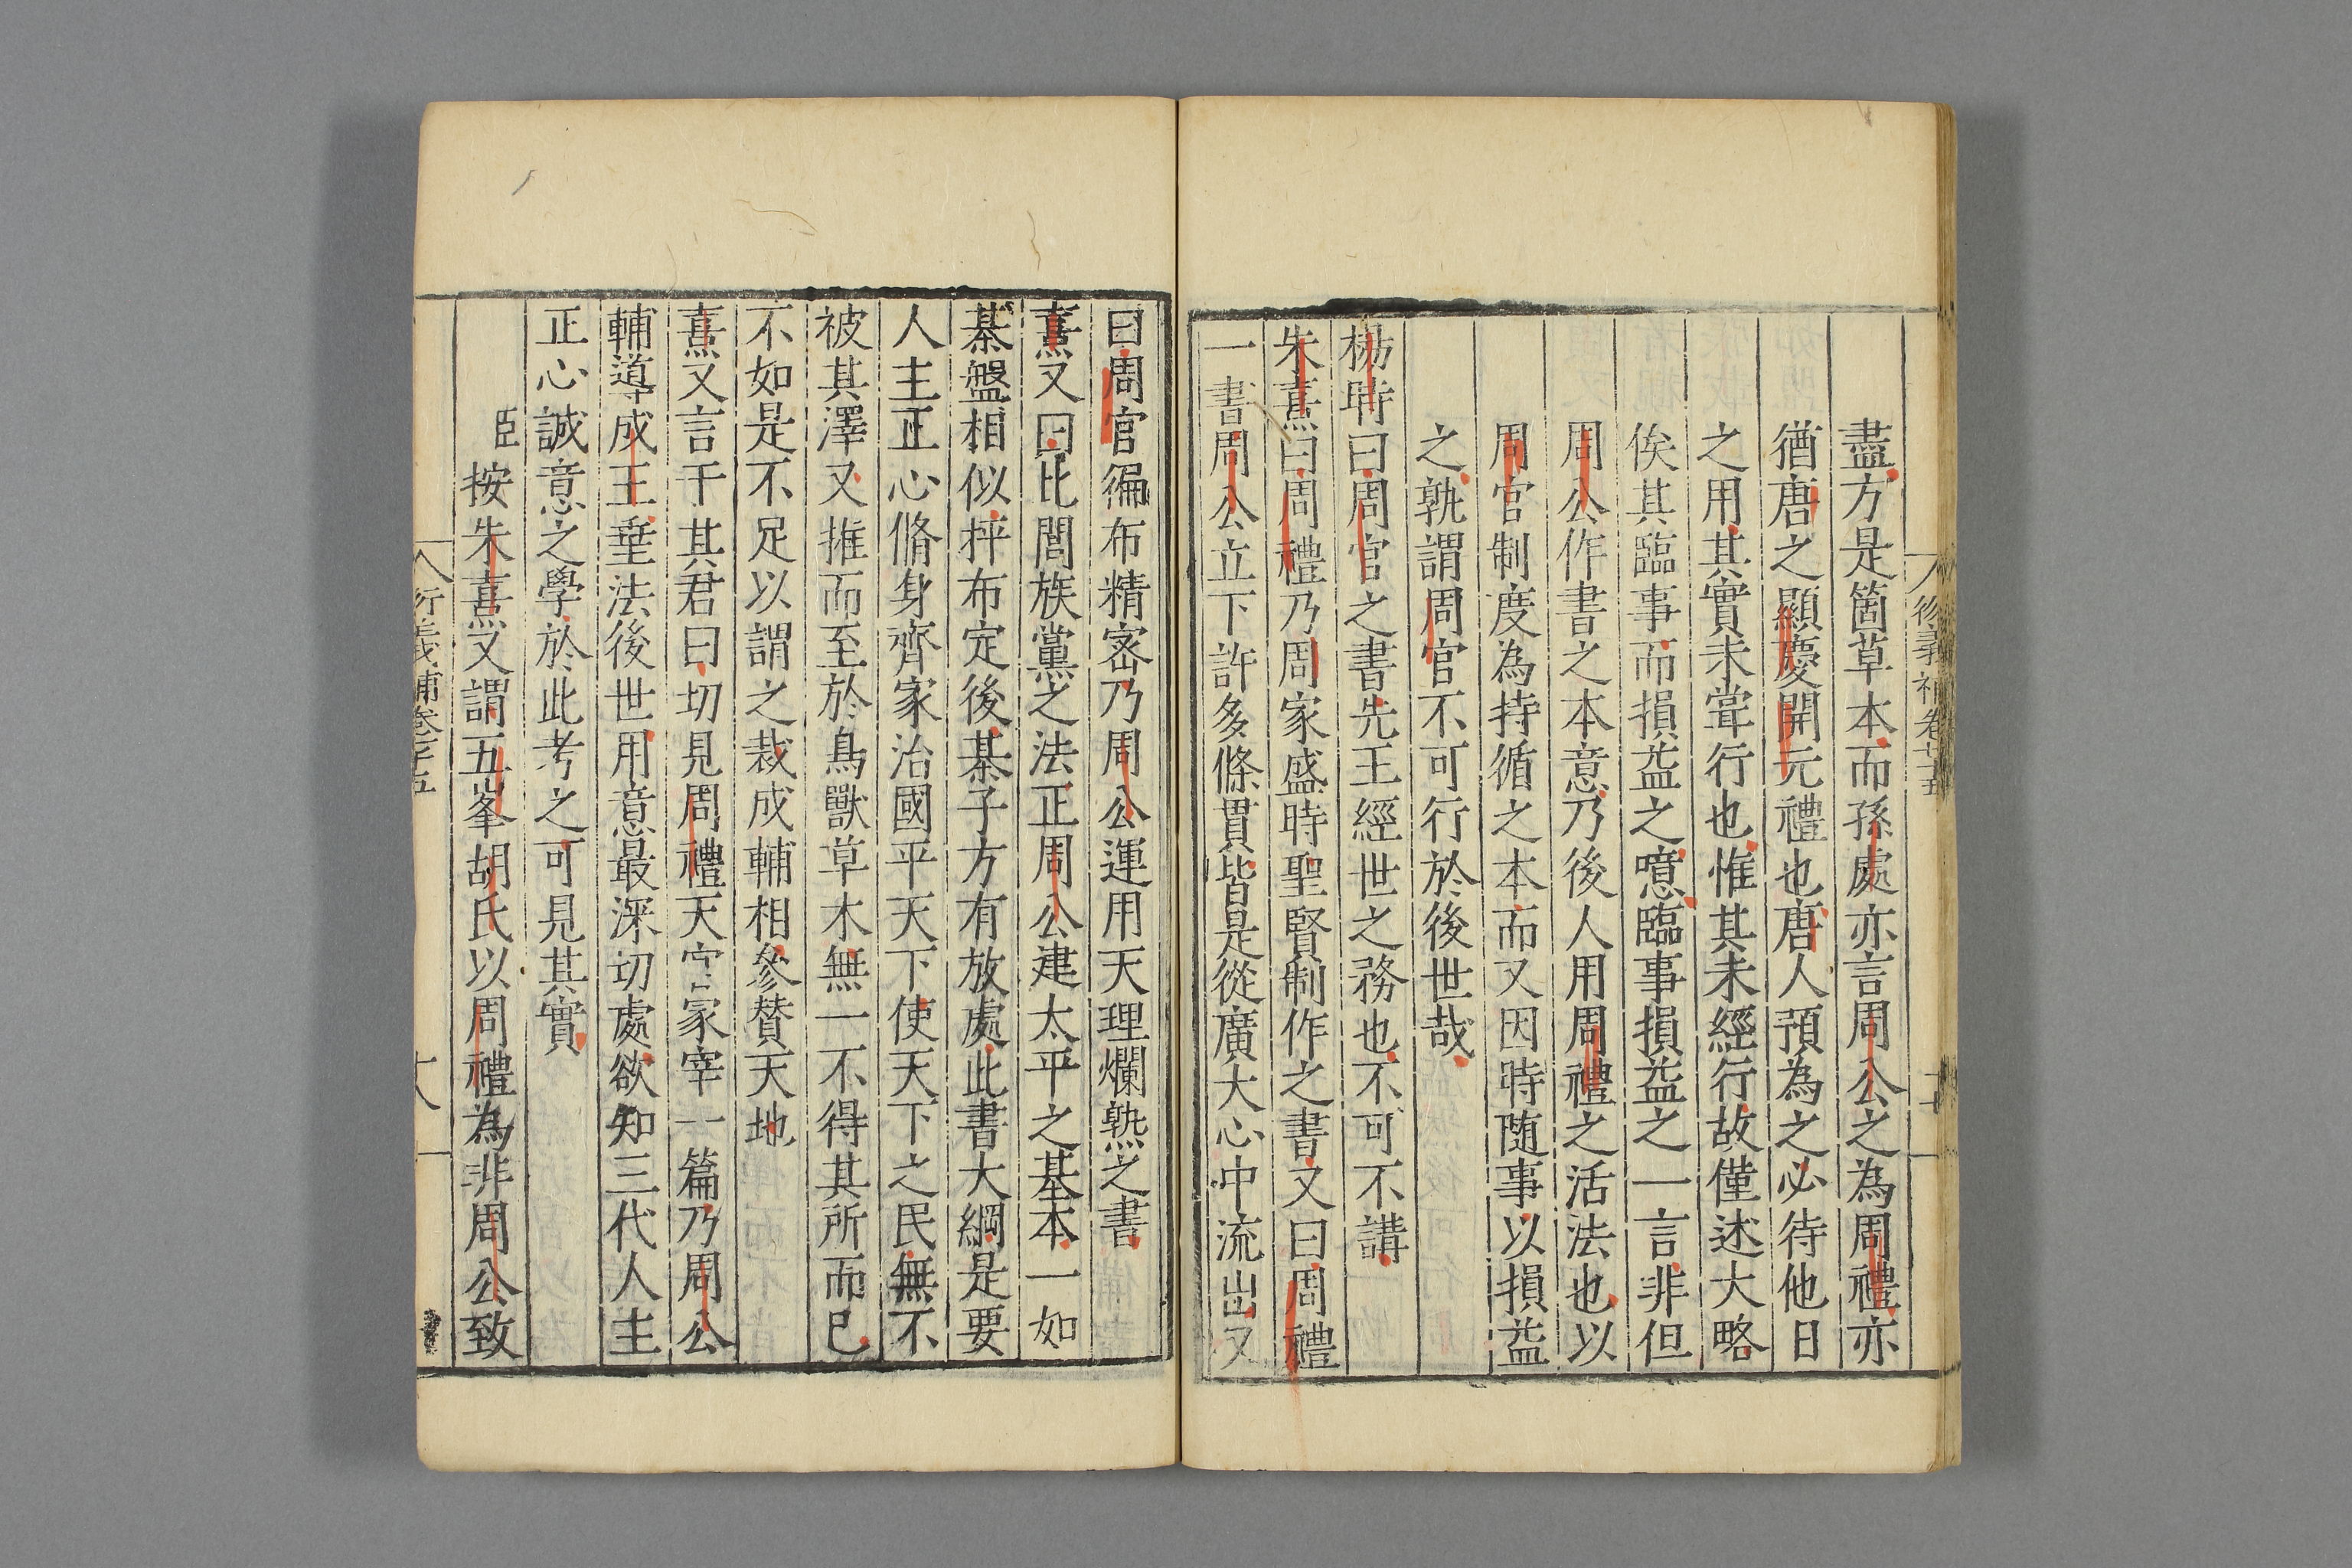 盡方是箇草本而孫處亦言周公之為周禮亦
猶唐之顯慶開元禮也唐人預為之必待他日
之用其實未甞行也惟其未經行故僅述大略
俟其臨事而損益之噫臨事損益之一言非但
周公作書之本意乃後人用周禮之活法也以
周官制度為持循之本而又因時随事以損益
之孰謂周官不可行於後世哉
楊時曰周官之書先王經世之務也不可不講
朱熹曰周禮乃周家盛時聖賢制作之書又曰周禮
一書周公立下許多條貫皆是從廣大心中流出又
曰周官徧布精宻乃周公運用天理爛熟之書
熹又曰比閭族黨之法正周公建太平之基本一如
棊盤相似枰布定後棊子方有放處此書大綱是要
人主正心脩身齊家治國平天下使天下之民無不
被其澤又推而至於鳥獸草木無一不得其所而已
不如是不足以謂之裁成輔相參賛天地
熹又言于其君曰切見周禮天官冢宰一篇乃周公
輔導成王垂法後世用意最深切處欲知三代人主
正心誠意之學於此考之可見其實
臣按朱熹又謂五峯胡氏以周禮為非周公致
衍義補卷
十八